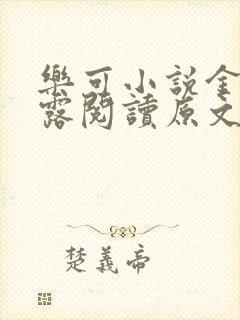 樂可小說金
露閱讀原文
楚義帝